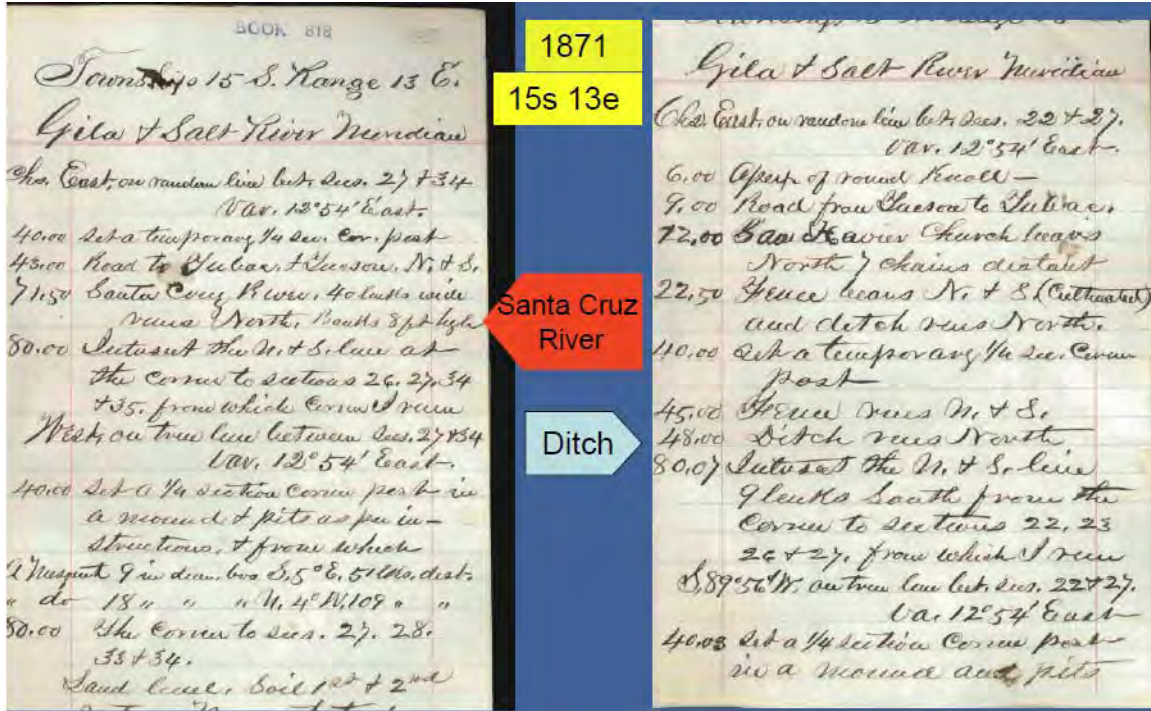 BOOK 818
Township 15 S. Range 13 E.
Gila & Salt River Meridian
Chs. East, on random line bet. secs. 27 & 34
Var. 12°54' East.
40.00 Set a temporary 1/4 sec. Cor. post
43.00 Road to Tubac & Tucson, N. & S.
71.50 Santa Cruz River, 40 links wide
runs North, Banks 8 ft high
80.00 Intersect the N. & S. line at
the corner to sections 26. 27. 34
& 35. from which corner I run
West, on true line between secs. 27 & 34
Var. 12°54' East.
40.00 Set a 1/4 section Corner post in
a mound & pits as per in-
structions, & from which
A Mesquit 9 in diam. brs S. 5° E. 51 lks. dist.
" do 18 " " " N. 4° W. 109 " "
80.00 The Corner to secs. 27. 28.
33 & 34.
Land level, Soil 1st & 2nd
1871
15s 13e
Santa Cruz
River
Ditch
Gila & Salt River Meridian
Chs. East, on random line bet. secs. 22 & 27.
Var. 12°54' East.
6.00 Apex of round Knoll —
9.00 Road from Tucson to Tubac.
12.00 San Xavier Church bears
North 7 chains distant
22.50 Fence bears N. & S. (Cultivated)
and ditch runs North.
40.00 Set a temporary 1/4 sec. Corner
post
45.00 Fence runs N. & S.
48.00 Ditch runs North
80.07 Intersect the N. & S. line
9 links South from the
Corner to sections 22. 23
26 & 27. from which I run
S. 89°56' W. on true line bet. secs. 22 & 27.
Va. 12°54' East
40.03 Set a 1/4 section Corner post
in a mound and pits